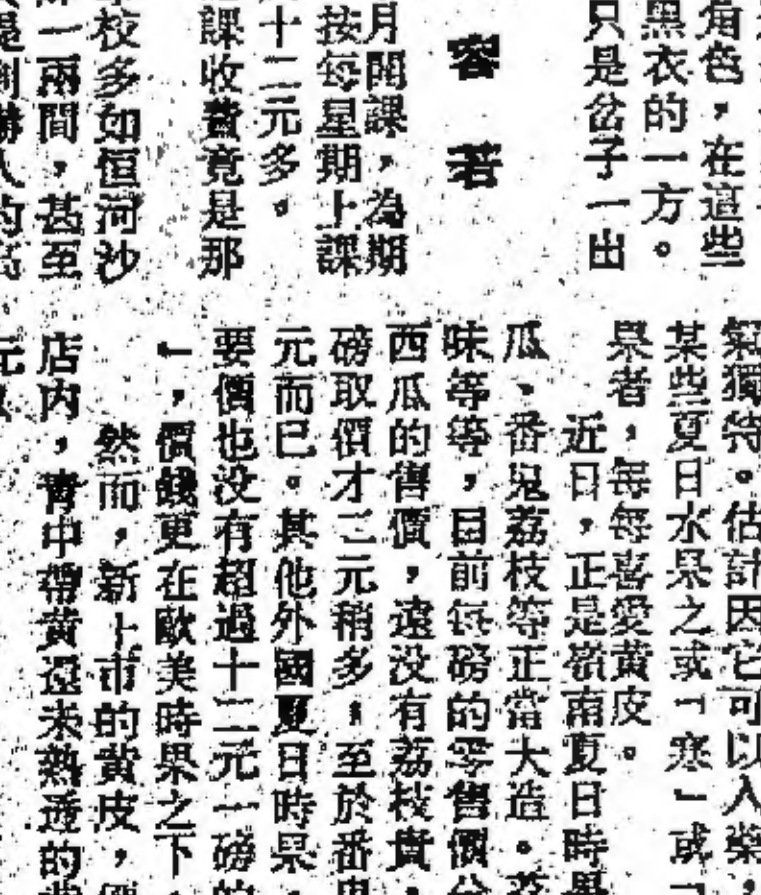 角色，在這些
黑衣的一方。
只是岔子一出
容若
月開課，為期
按每星期上課
十二元多。
課收費竟是那
校多如恒河沙
一兩間，甚至
氣獨特。估計因它可以入藥，
某些夏日水果之或「寒」或「
果者，每每喜愛黃皮。
近日，正是嶺南夏日時果
瓜、番鬼荔枝等正當大造。荔
味等等，目前每磅的零售價分
西瓜的售價，遠没有荔枝貴，
磅取價才三元稍多；至於番鬼
元而已。其他外國夏日時果，
要價也没有超過十二元一磅的
」，價錢更在歐美時果之下，
然而，新上市的黃皮，價
店內，青中帶黃還未熟透的黃